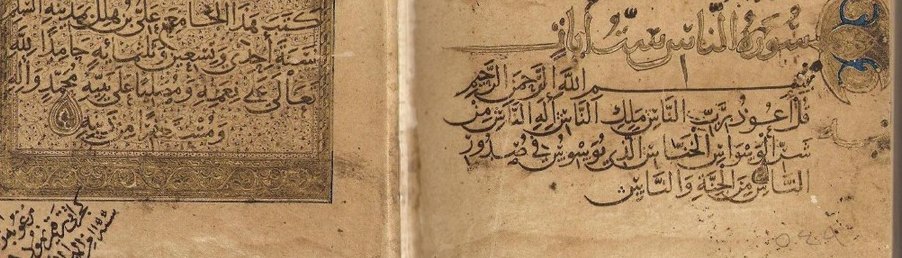 سورة الناس ست أيات
بسم الله الرحمن الرحيم
قل أعوذ برب الناس ملك الناس إله الناس من
شر الوسواس الخناس الذي يوسوس في صدور
الناس من الجنة والناس
كتب هذا الجامع علي بن هلال بمدينة السلم
سنة احدى وتسعين وثلثمائة حامدا لله
تعالى على نعمه ومصليا على نبيه محمد واله
ومستغفرا من ذنبه